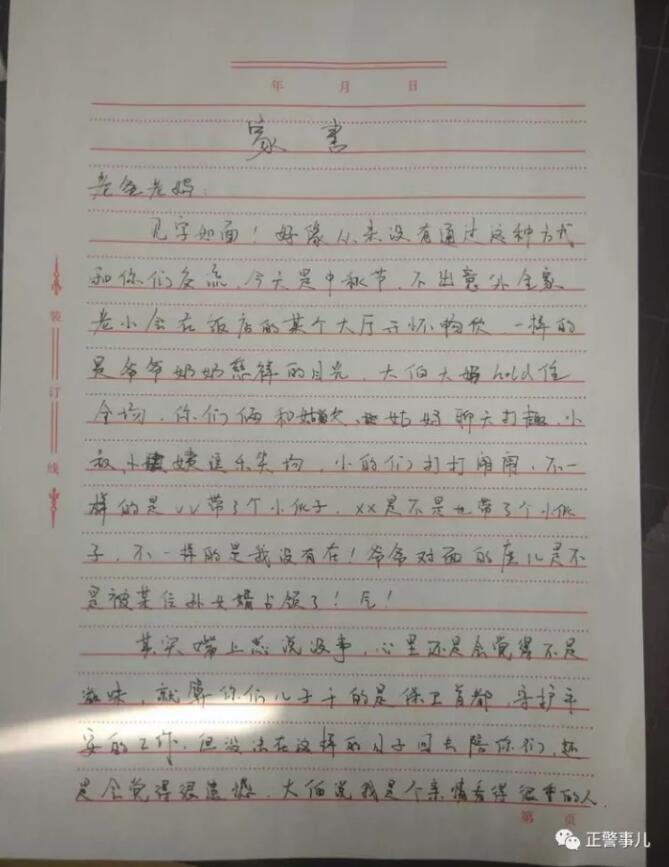 年 月 日
家书
老爸老妈：
见字如面！好像从来没有通过这种方式
和你们交流，今天是中秋节，不出意外全家
老小会在饭店的某个大厅开怀畅饮，一样的
是爷爷奶奶慈祥的目光，大伯大妈hold住
全场，你们俩和姑父、姑妈聊天打趣，小
叔、小姨逗乐笑场，小的们打打闹闹，不一
样的是VV带了个小伙子，XX是不是也带了个小伙
子，不一样的是我没有在！爷爷对面的座儿是不
是被某位孙女婿占领了！气！
其实嘴上总说没事，心里还是会觉得不是
滋味，就算你们儿子干的是保卫首都，守护平
安的工作，但没法在这样的日子回去陪你们，还
是会觉得很遗憾，大伯说我是个亲情看得很重的人，
装订线
第 页
正警事儿